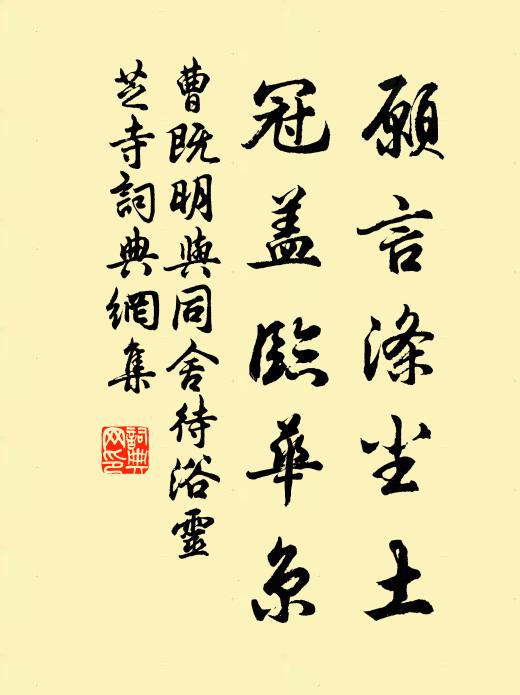 願言滌塵土
冠盖臨華京
曹既明與同舍待浴靈
芝寺詞典網集
詞典网印